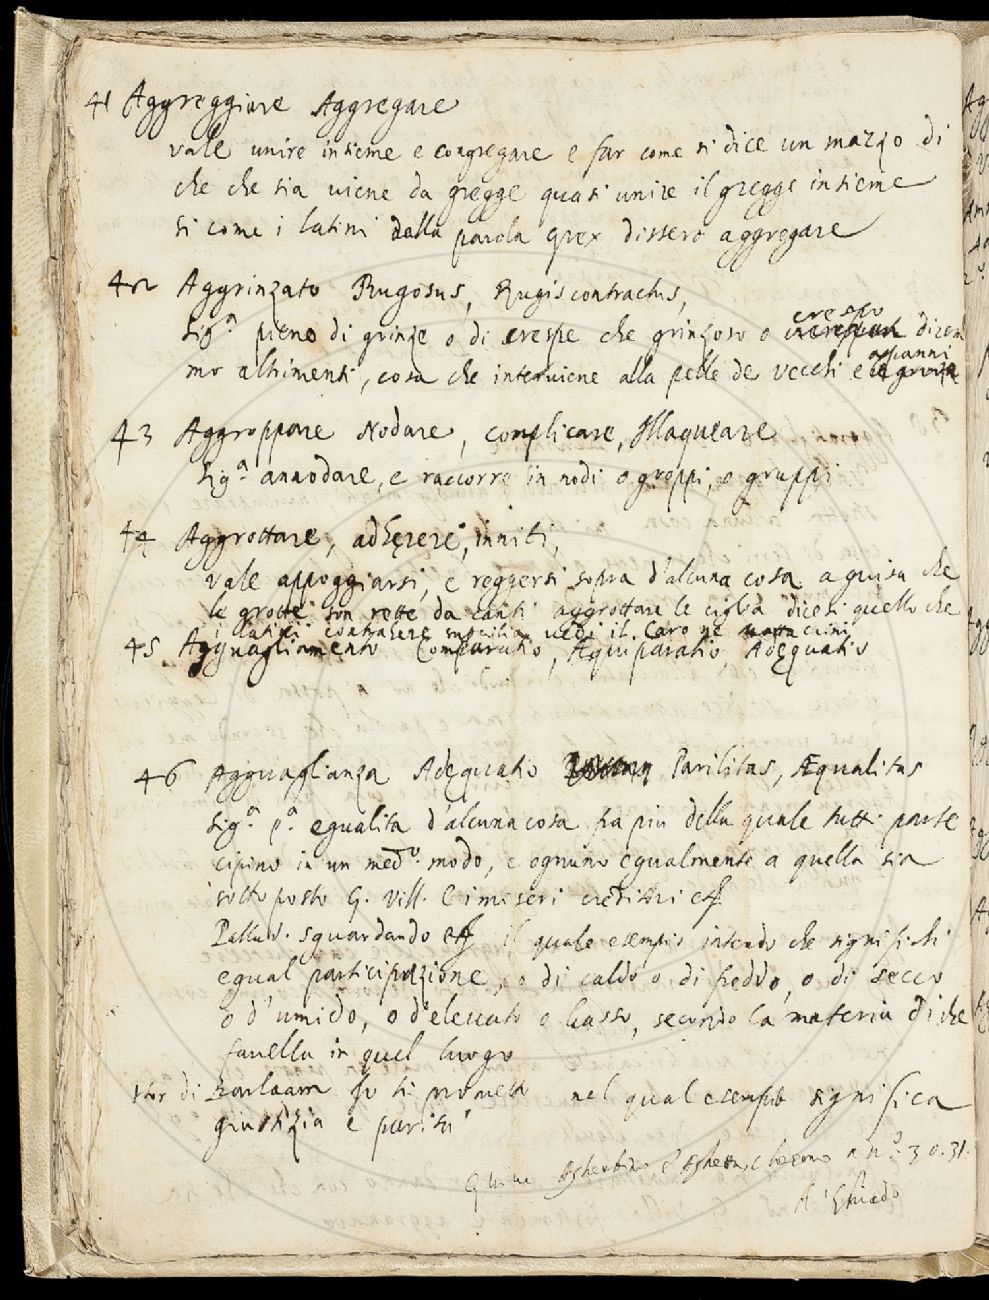 41 Aggreggiare Aggregare
vale unire insieme e congregare e far come si dice un mazzo di
che che sia viene da gregge quasi unire il gregge insieme
si come i latini dalla parola grex dissero aggregare
42 Aggrinzato Rugosus, Rugis contractus,
sig.a pieno di grinze o di crespe che grinzoso o crespo dicia
mo altrimenti, cosa che interviene alla pelle de vecchi e a panni
43 Aggroppare Nodare, complicare, Illaqueare
sig.a annodare, e raccorre in nodi o groppi, o gruppi
44 Aggrottare, adherere, inniti,
vale appoggiarsi, e reggersi sopra d'alcuna cosa a guisa che
le grotte son rette da canti aggrottare le ciglia dicesi quello che
i latini contraere supercilia vedi il Caro ne mattaccini
45 Agguagliamento Comparatio, Aequiparatio, Adequatio
46 Agguaglianza Adequatio Parilitas, Æqualitas
sig.a p.a egualità d'alcuna cosa fra piu della quale tutti parte
cipino in un med.o modo, e ognuno egualmente a quella sia
sottoposto G. Vill. E i miseri creditori
Pallad. sguardando il quale esempio intendo che significhi
egual participazione, o di caldo o di freddo, o di secco
o d'umido, o d'elevato o basso, secondo la materia di che
favella in quel luogo
Stor di Barlaam Io ti prometto nel qual esempio significa
giustizia e parità
a n.o 30. 31.